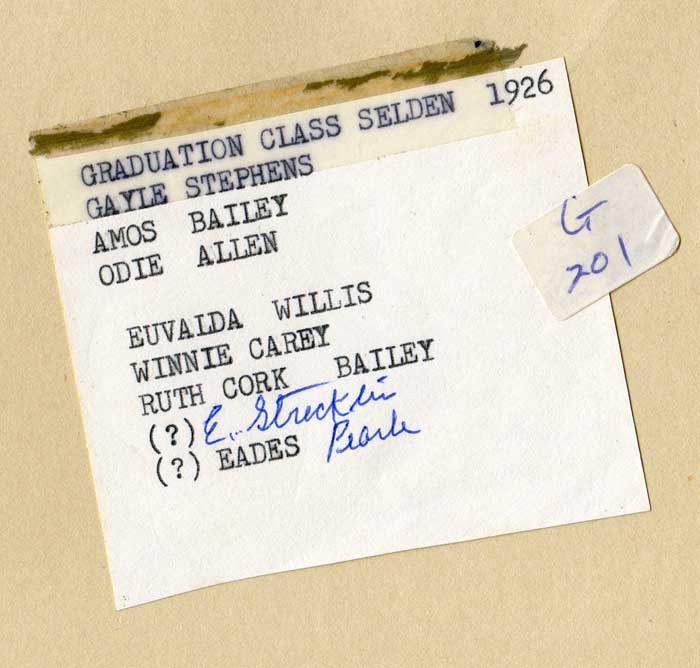 GRADUATION CLASS SELDEN 1926
GAYLE STEPHENS
AMOS BAILEY
ODIE ALLEN
EUVALDA WILLIS
WINNIE CAREY
RUTH CORK BAILEY
(?) E. Strecklin
(?) EADES Pearle
G
201